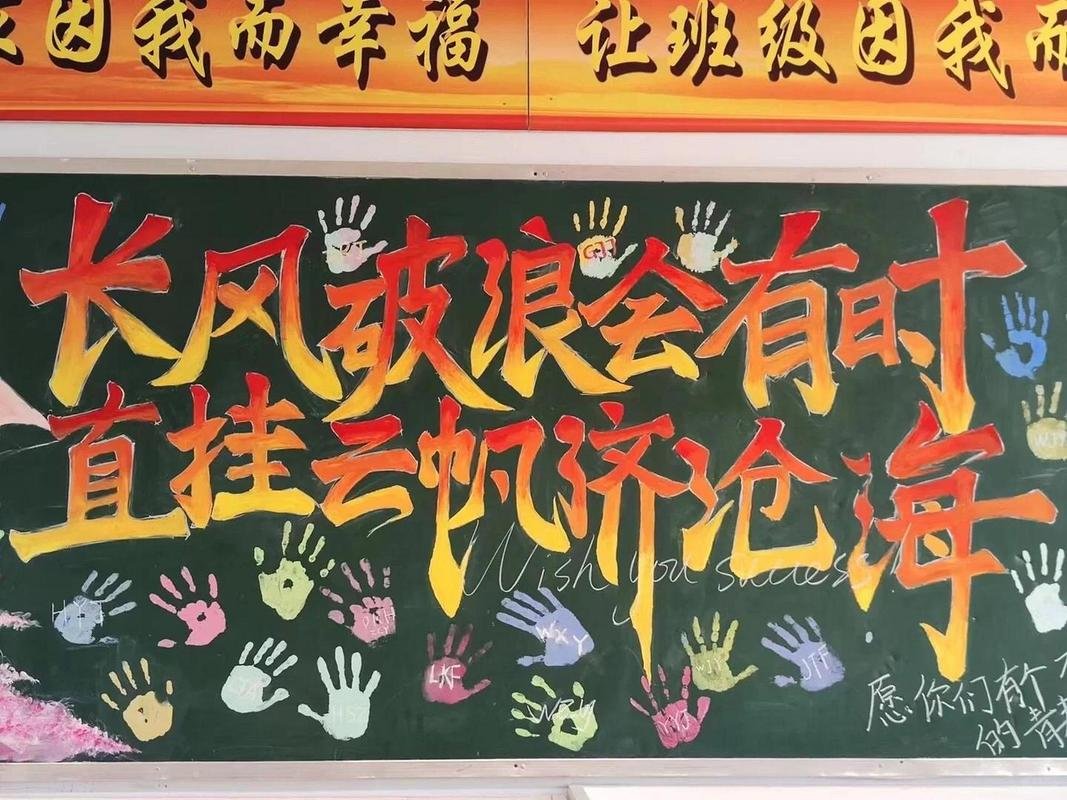 因我而幸福 让班级因我而
长风破浪会有时
直挂云帆济沧海
Wish you success
HYT
LKF
WXY
WJY
JTF
HSZ
愿你们有个
的青